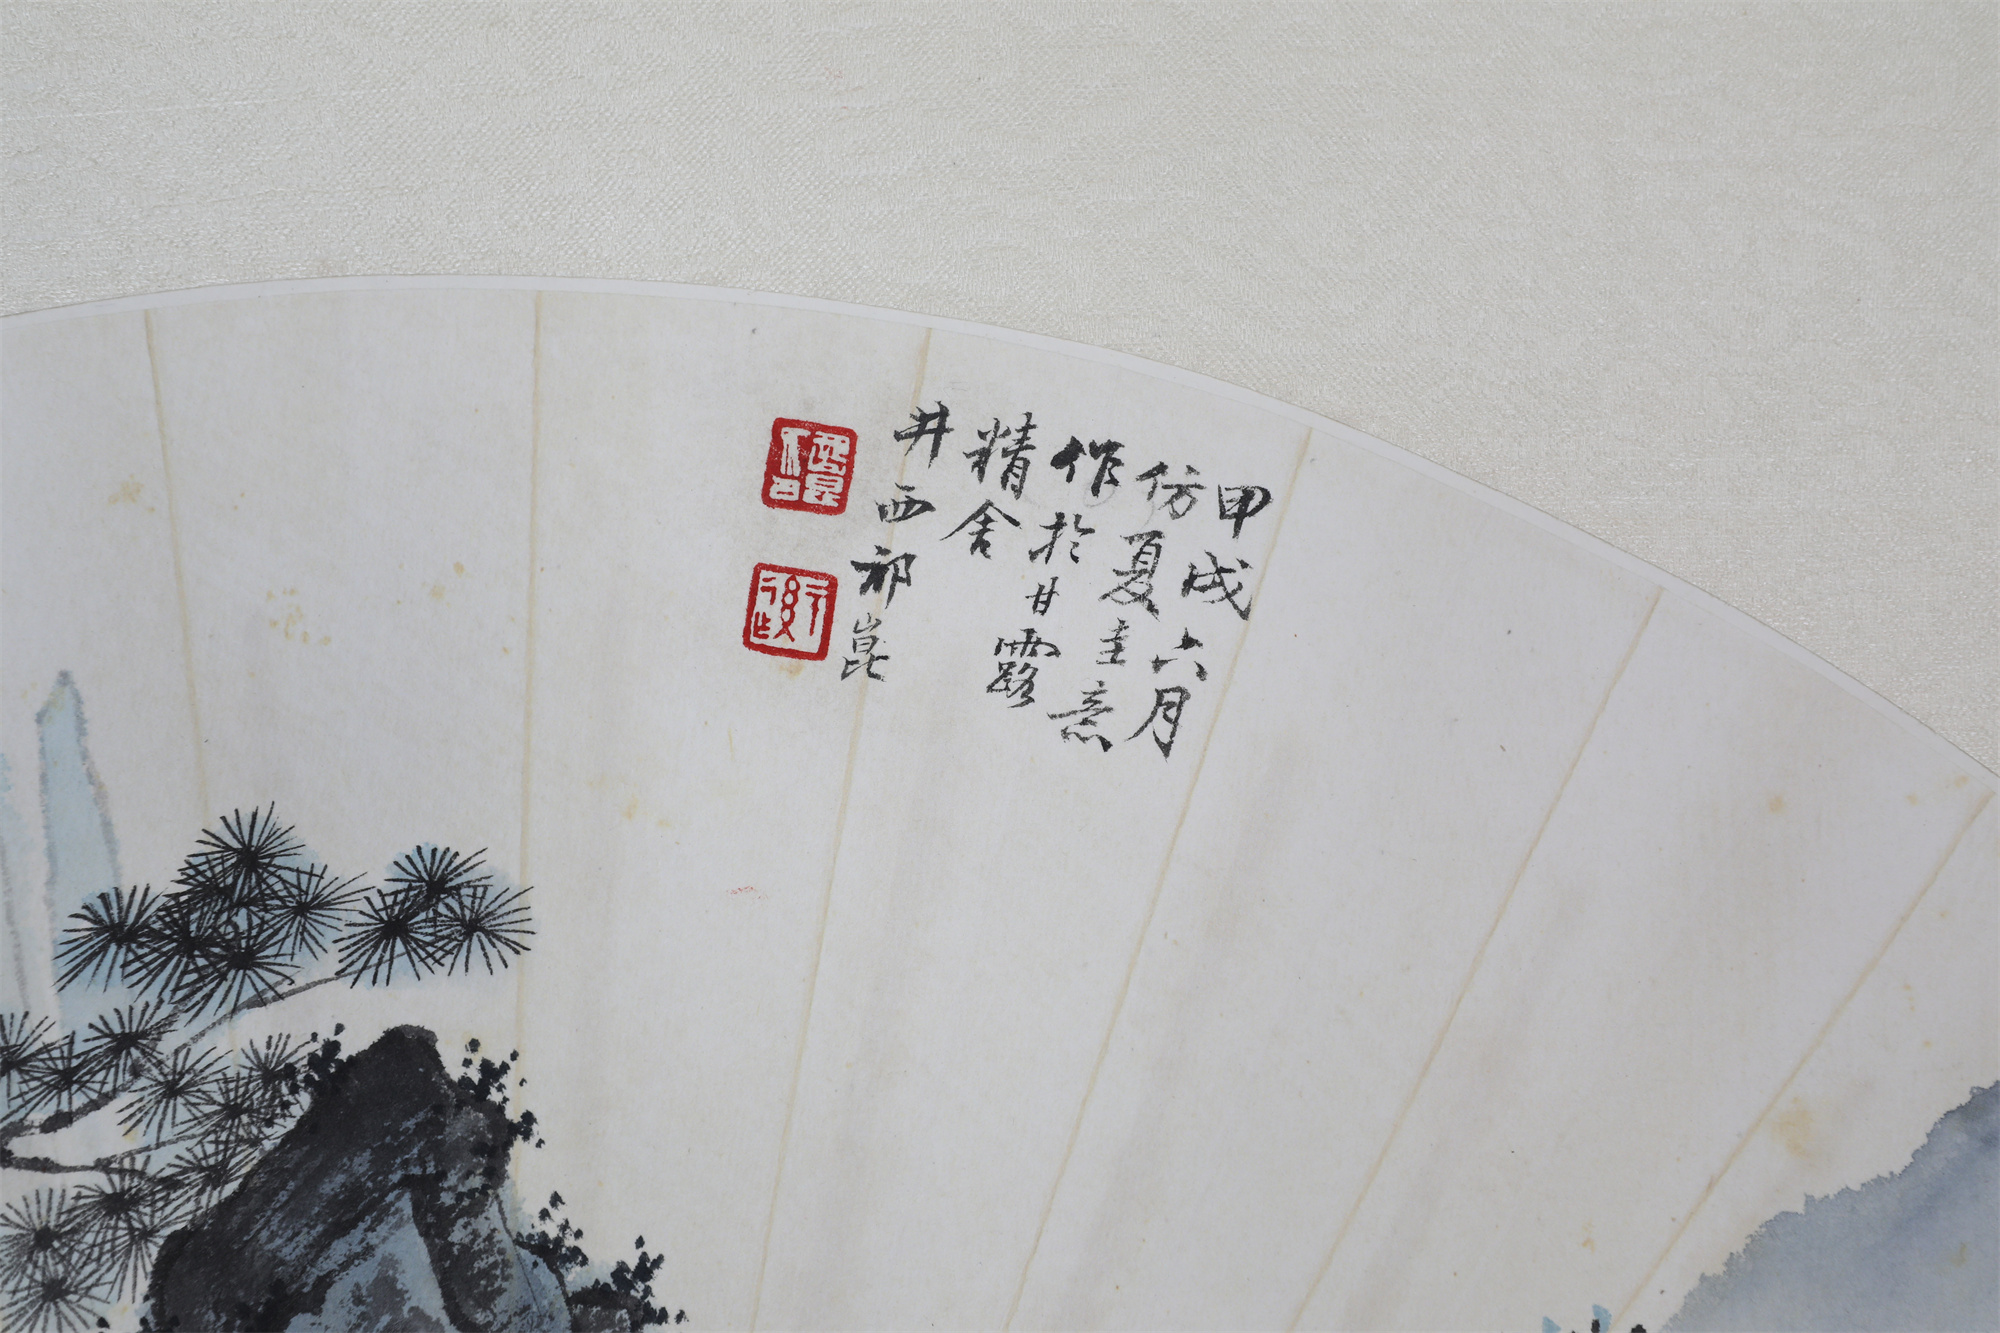 甲戌六月
仿夏圭意
作於甘露
精舍
井西祁崑
祁崑